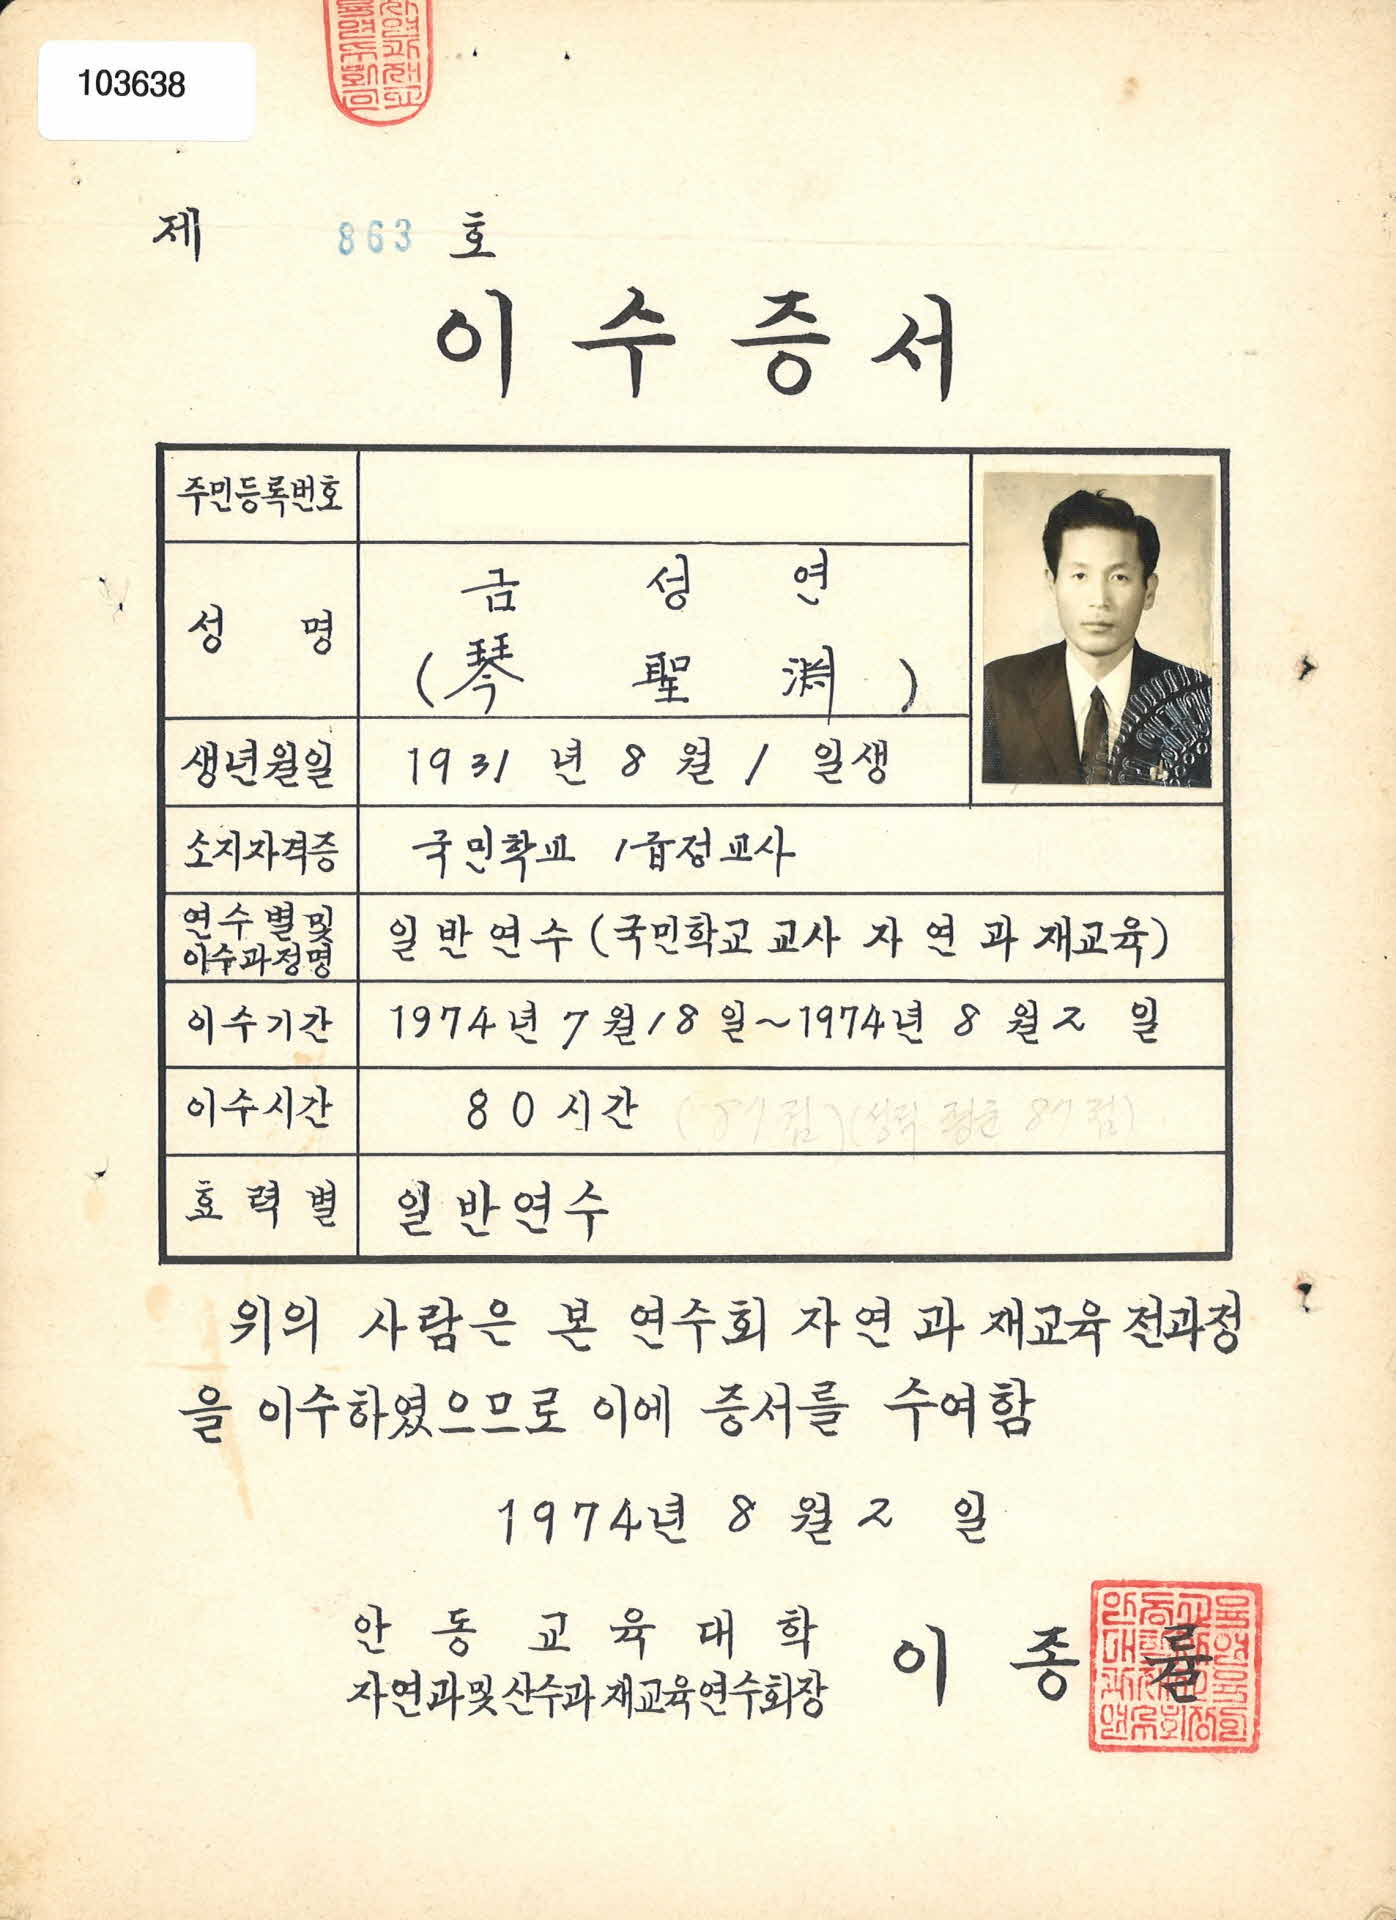 103638
제 863 호
이수증서
주민등록번호
성 명 금 성 연
(琴 聖 渊)
생년월일 1931년 8월 1일생
소지자격증 국민학교 1급정교사
연수별및
이수과정명 일반연수(국민학교 교사 자연과 재교육)
이수기간 1974년 7월 18일~1974년 8월 2일
이수시간 80시간 (87점)(성적 평균 87점)
효력별 일반연수
위의 사람은 본 연수회 자연과 재교육 전과정
을 이수하였으므로 이에 증서를 수여함
1974년 8월 2일
안동교육대학
자연과및산수과재교육연수회장 이종률